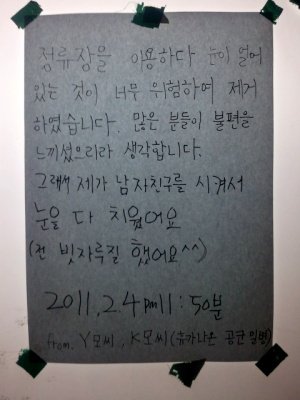 정류장을 이용하다 눈이 얼어
있는 것이 너무 위험하여 제거
하였습니다. 많은 분들이 불편을
느끼셨으리라 생각합니다.
그래서 제가 남자친구를 시켜서
눈을 다 치웠어요
(전 빗자루질 했어요^^)
2011. 2. 4 pm11:50분
from. Y모씨, K모씨(휴가나온 공군일병)